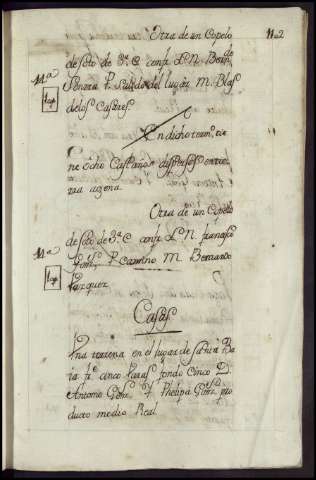 Otra de un Copelo
1102
de soto de 3ª C confr L. N. Bern.do
11 a
Senora P. Salido del lugar M. Blas
1 cop
de los Casares.
En dicho term.o tie
ne ocho Castaños dispersos en tie
rra agena.
Otra de un Copelo
11 a
de soto de 3ª C confr L. N. francisco
1 cop
P. Camino M. Bernardo
Vazquez
Casas.
Una terrena en el lugar de Santa Ba
ia fr.e cinco Varas fondo Cinco D.
Antonio P. Phelipa pro
ducto medio Real.